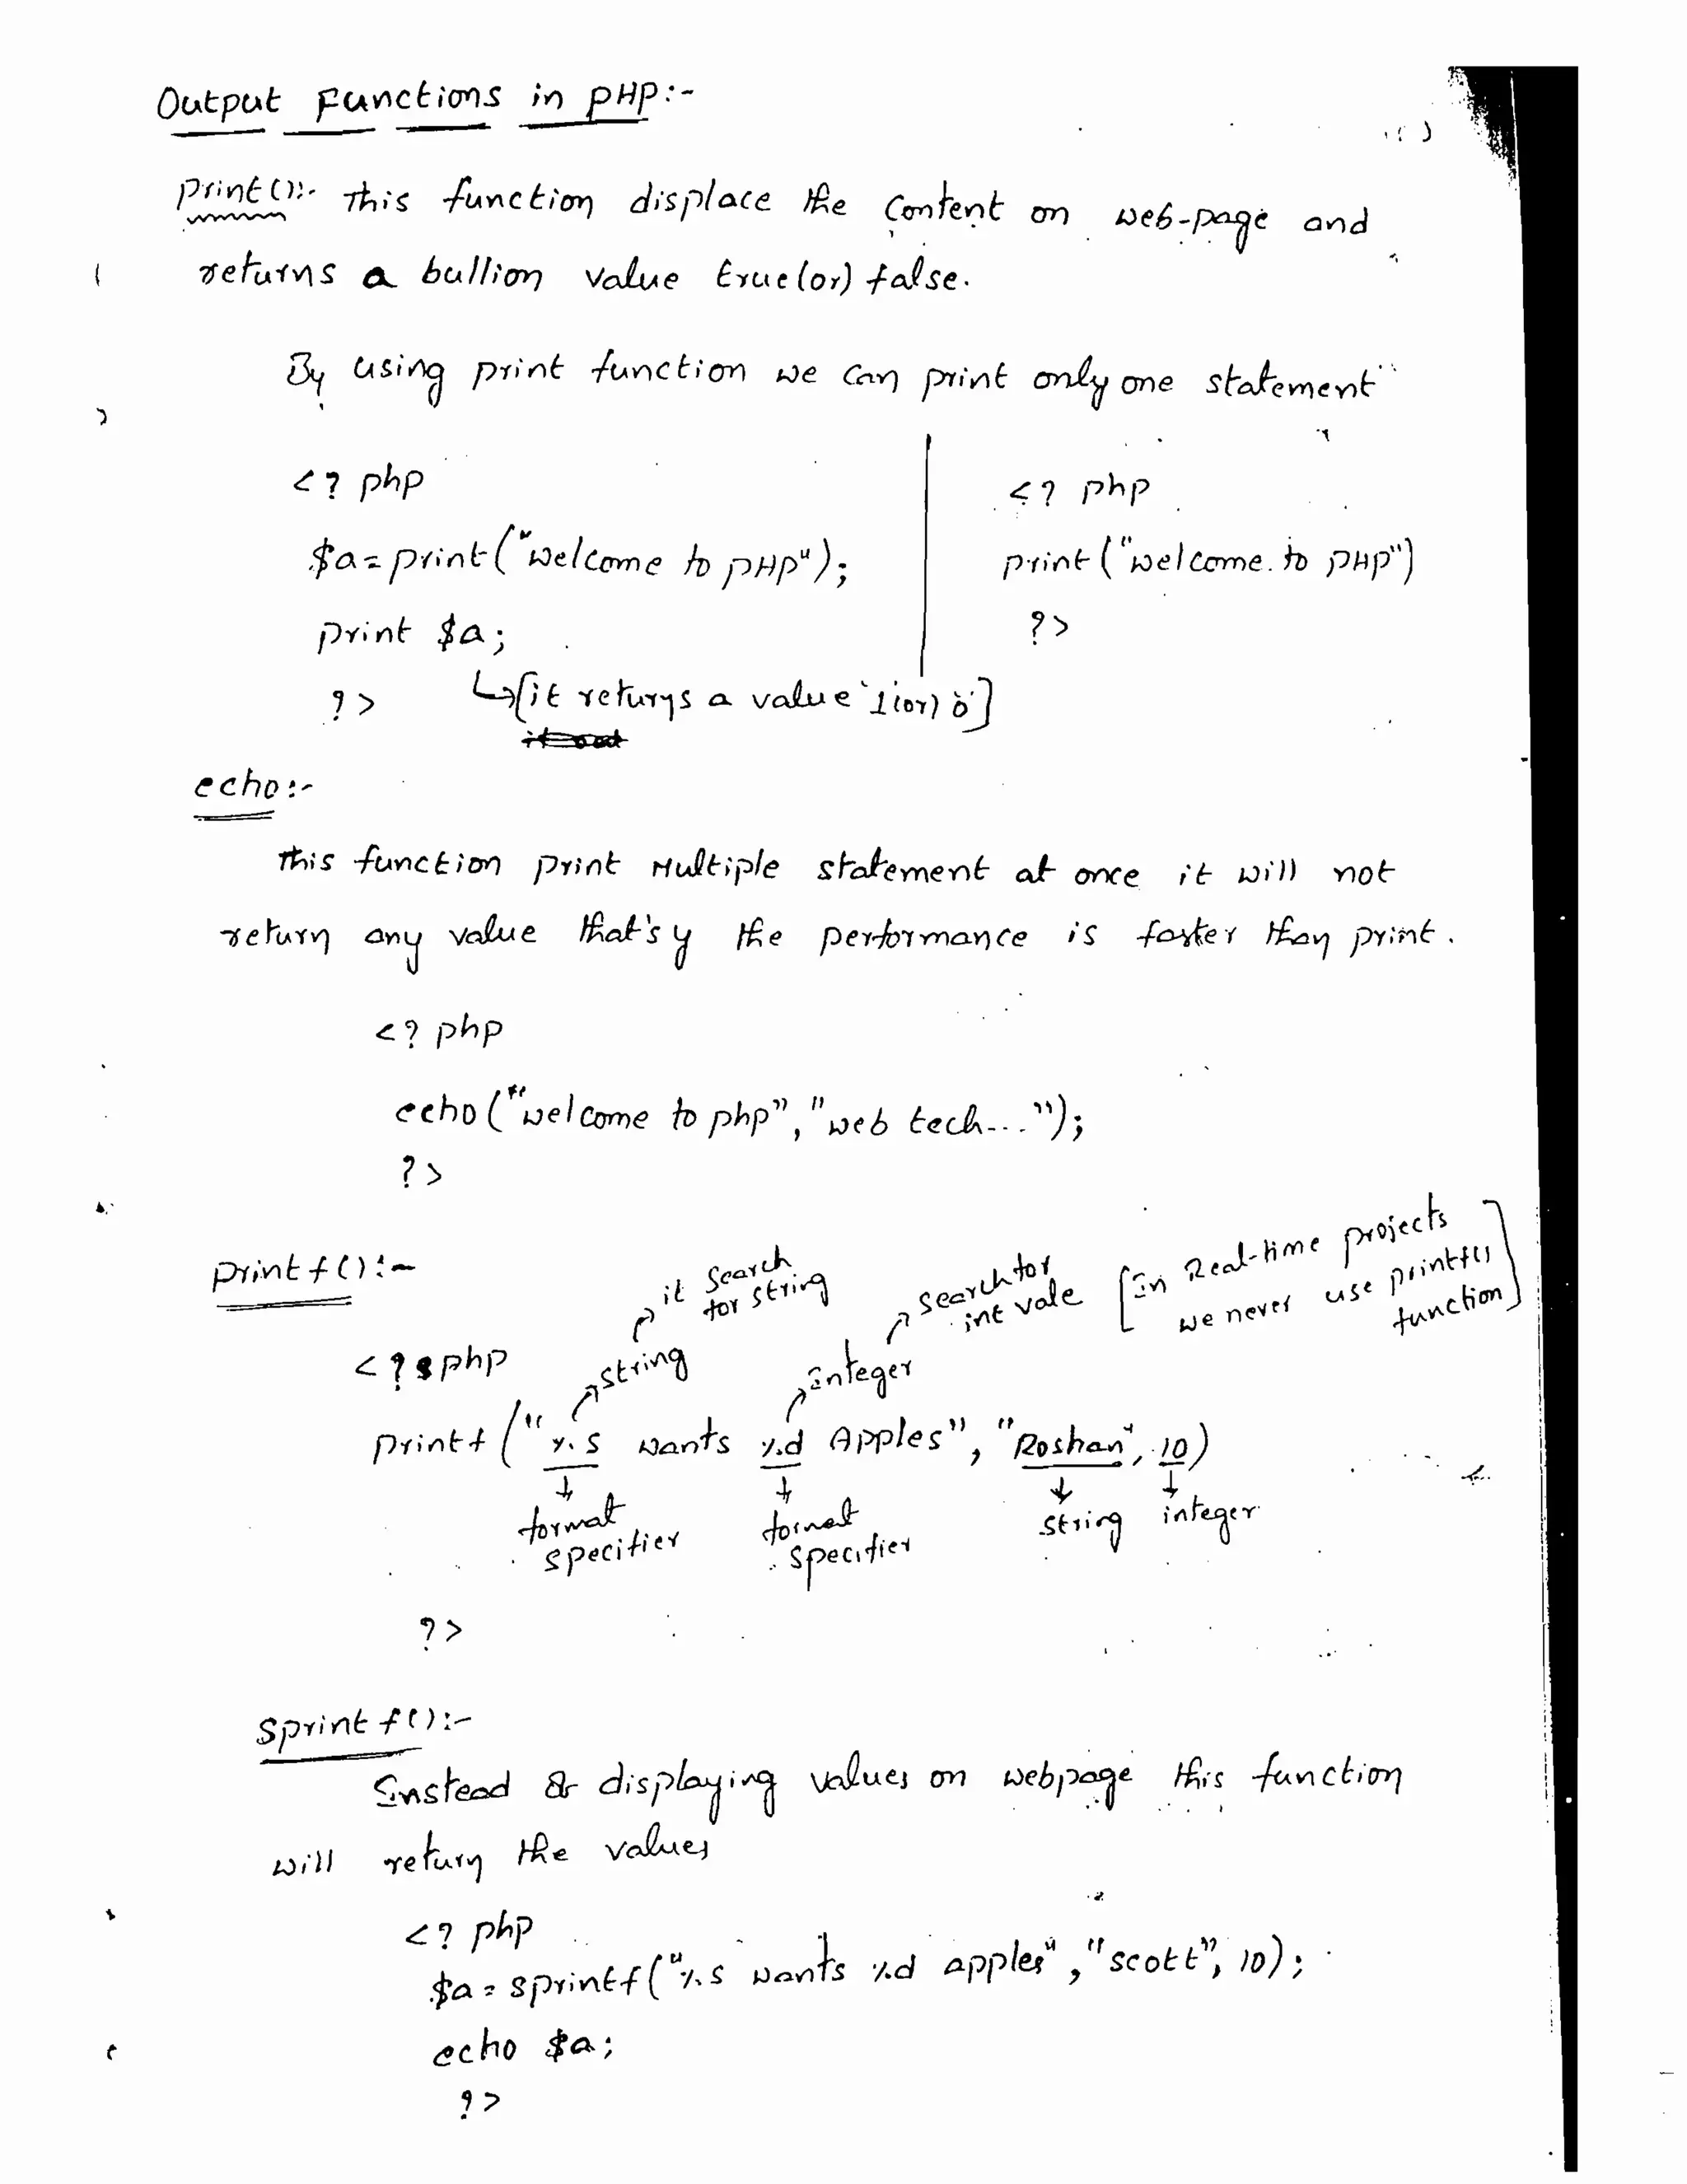 Output Functions in PHP:-
Print():- This function displace the Content on web-page and
returns a bullion value true(or) false.
By using print function we can print only one statement
<? php
$a=print("welcome to PHP");
print $a;
?>
↳[it returns a value '1(or) 0']
<? php
print ("welcome to PHP")
?>
echo:-
This function print Multiple statement at once it will not
return any value that's y the performance is faster than print.
<? php
echo("welcome to php", "web tech...");
?>
printf():-
it Search for string
Search for int vale
[In Real-time projects
we never use printf()
function]
<? php
string
Integer
printf ("%s wants %d Apples", "Roshan", 10)
format specifier
format specifier
string
integer
?>
Sprintf():-
Instead of displaying values on webpage this function
will return the values
<? php
$a = sprintf("%s wants %d apples", "scott", 10);
echo $a;
?>